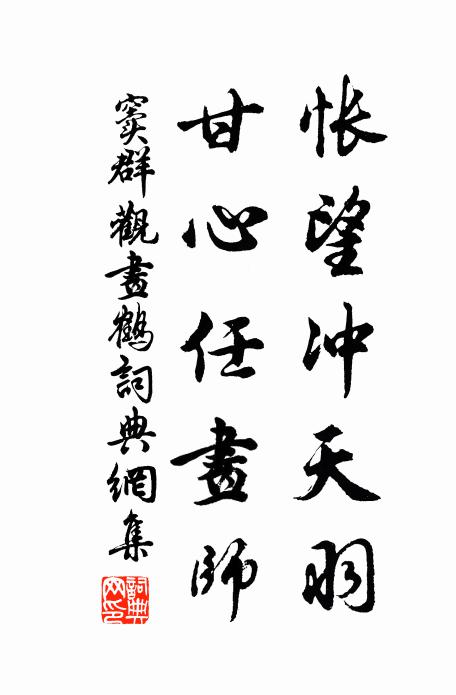 悵望沖天羽
甘心任畫師
竇群觀畫鶴詞典網集
詞典網印